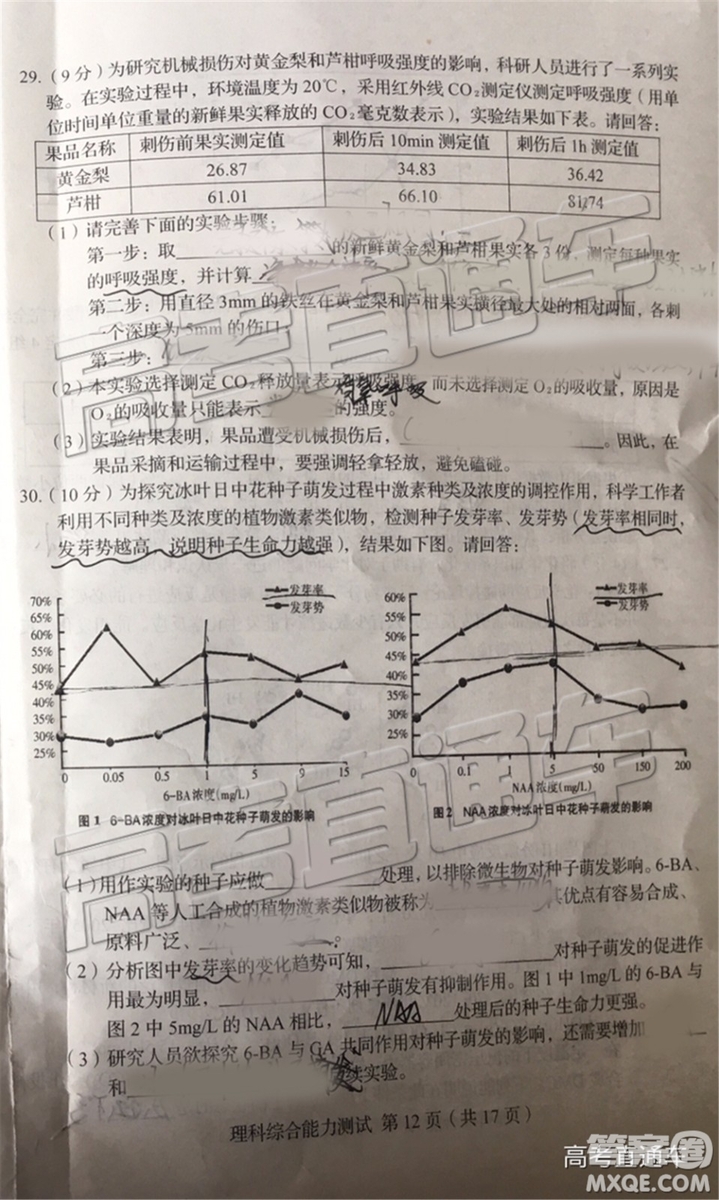 29.（9分）为研究机械损伤对黄金梨和芦柑呼吸强度的影响，科研人员进行了一系列实
验。在实验过程中，环境温度为20℃，采用红外线CO₂测定仪测定呼吸强度（用单
位时间单位重量的新鲜果实释放的CO₂毫克数表示），实验结果如下表。请回答：
果品名称 刺伤前果实测定值 刺伤后10min测定值 刺伤后1h测定值
黄金梨 26.87 34.83 36.42
芦柑 61.01 66.10 81.74
（1）请完善下面的实验步骤：
第一步：取 的新鲜黄金梨和芦柑果实各3份，测定每种果实
的呼吸强度，并计算
第二步：用直径3mm的铁丝在黄金梨和芦柑果实横径最大处的相对两面，各刺
一个深度为5mm的伤口
第三步：
（2）本实验选择测定CO₂释放量表示呼吸强度，而未选择测定O₂的吸收量，原因是
O₂的吸收量只能表示 呼吸 的强度。
（3）实验结果表明，果品遭受机械损伤后， 。因此，在
果品采摘和运输过程中，要强调轻拿轻放，避免磕碰。
30.（10分）为探究冰叶日中花种子萌发过程中激素种类及浓度的调控作用，科学工作者
利用不同种类及浓度的植物激素类似物，检测种子发芽率、发芽势（发芽率相同时，
发芽势越高，说明种子生命力越强），结果如下图。请回答：
发芽率
发芽势
70%
65%
60%
55%
50%
45%
40%
35%
30%
25%
0 0.05 0.5 1 5 9 15
6-BA浓度(mg/L)
图1 6-BA浓度对冰叶日中花种子萌发的影响
发芽率
发芽势
60%
55%
50%
45%
40%
35%
30%
25%
0 0.1 1 5 50 150 200
NAA浓度(mg/L)
图2 NAA浓度对冰叶日中花种子萌发的影响
（1）用作实验的种子应做 处理，以排除微生物对种子萌发影响。6-BA、
NAA等人工合成的植物激素类似物被称为 其优点有容易合成、
原料广泛、 。
（2）分析图中发芽率的变化趋势可知， 对种子萌发的促进作
用最为明显， 对种子萌发有抑制作用。图1中1mg/L的6-BA与
图2中5mg/L的NAA相比， NAA 处理后的种子生命力更强。
（3）研究人员欲探究6-BA与GA共同作用对种子萌发的影响，还需要增加
和 续实验。
理科综合能力测试 第12页（共17页）
高考直通车
高考直通车
高考直通车
高考直通车
答案圈
MXQE.COM